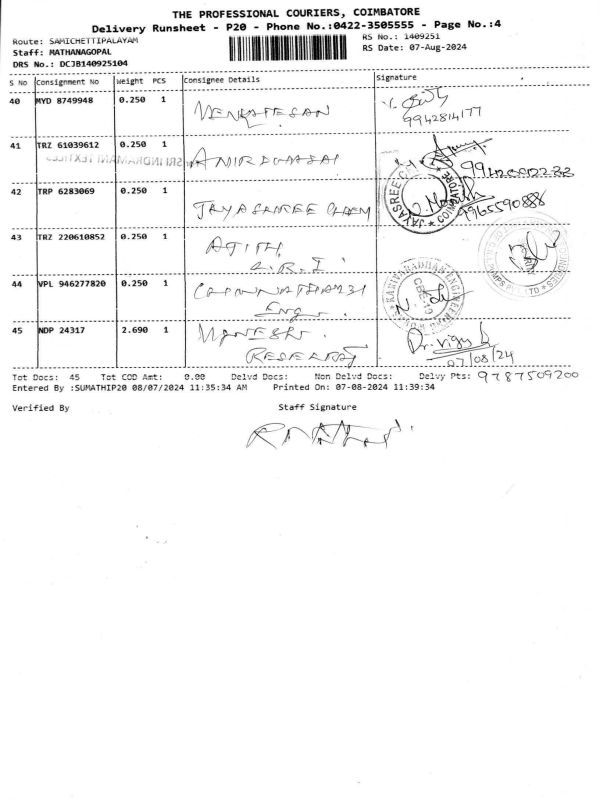 THE PROFESSIONAL COURIERS, COIMBATORE
Delivery Runsheet - P20 - Phone No.:0422-3505555 - Page No.:4
Route: SAMICHETTIPALAYAM
RS No.: 1409251
Staff: MATHANAGOPAL
RS Date: 07-Aug-2024
DRS No.: DCJB140925104
S No Consignment No Weight PCS Consignee Details Signature
40 MYD 8749948 0.250 1 VENKATESAN
9942814177
41 TRZ 61039612 0.250 1
42 TRP 6283069 0.250 1 JAYASHREE CHEM
9965590888
JAYASREE COIMBATORE
43 TRZ 220610852 0.250 1 AJITH
44 VPL 946277820 0.250 1
Eng
45 NDP 24317 2.690 1
Dr. Vigy
07/08/24
Tot Docs: 45 Tot COD Amt: 0.00 Delvd Docs: Non Delvd Docs: Delvy Pts: 9787509200
Entered By :SUMATHIP20 08/07/2024 11:35:34 AM Printed On: 07-08-2024 11:39:34
Verified By Staff Signature